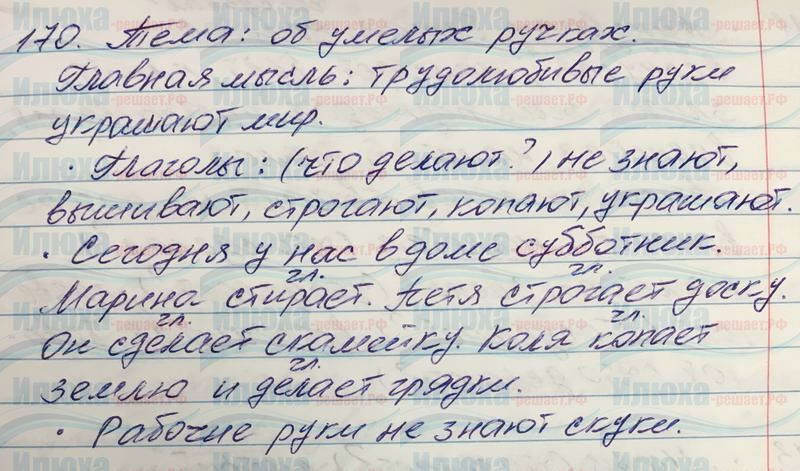 170. Тема: об умелых ручках.
Главная мысль: трудолюбивые руки
украшают мир.
• Глаголы: (что делают?) не знают,
вышивают, строгают, копают, украшают.
• Сегодня у нас в доме субботник.
гл. гл.
Марина стирает. Петя строгает доску.
гл. гл.
Он сделает скамейку. Коля копает
гл.
землю и делает грядки.
• Рабочие руки не знают скуки.
Илюха-решает.РФ